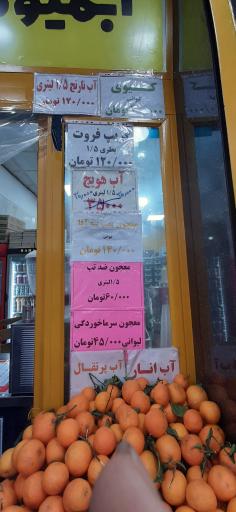 آبمیوه
آب نارنج ۱/۵ لیتری
۱۷۰/۰۰۰ تومان
تومان
پ فروت
بطری ۱/۵
۱۲۰/۰۰۰ تومان
آب هویج
۱/۵ لیتری
۳۵۰۰۰
معجون
۱۴۰/۰۰۰ تومان
معجون ضد تب
۱/۵ لیتری
۶۰/۰۰۰ تومان
معجون سرماخوردگی
لیوانی ۴۵/۰۰۰ تومان
آب انار
آب پرتقال